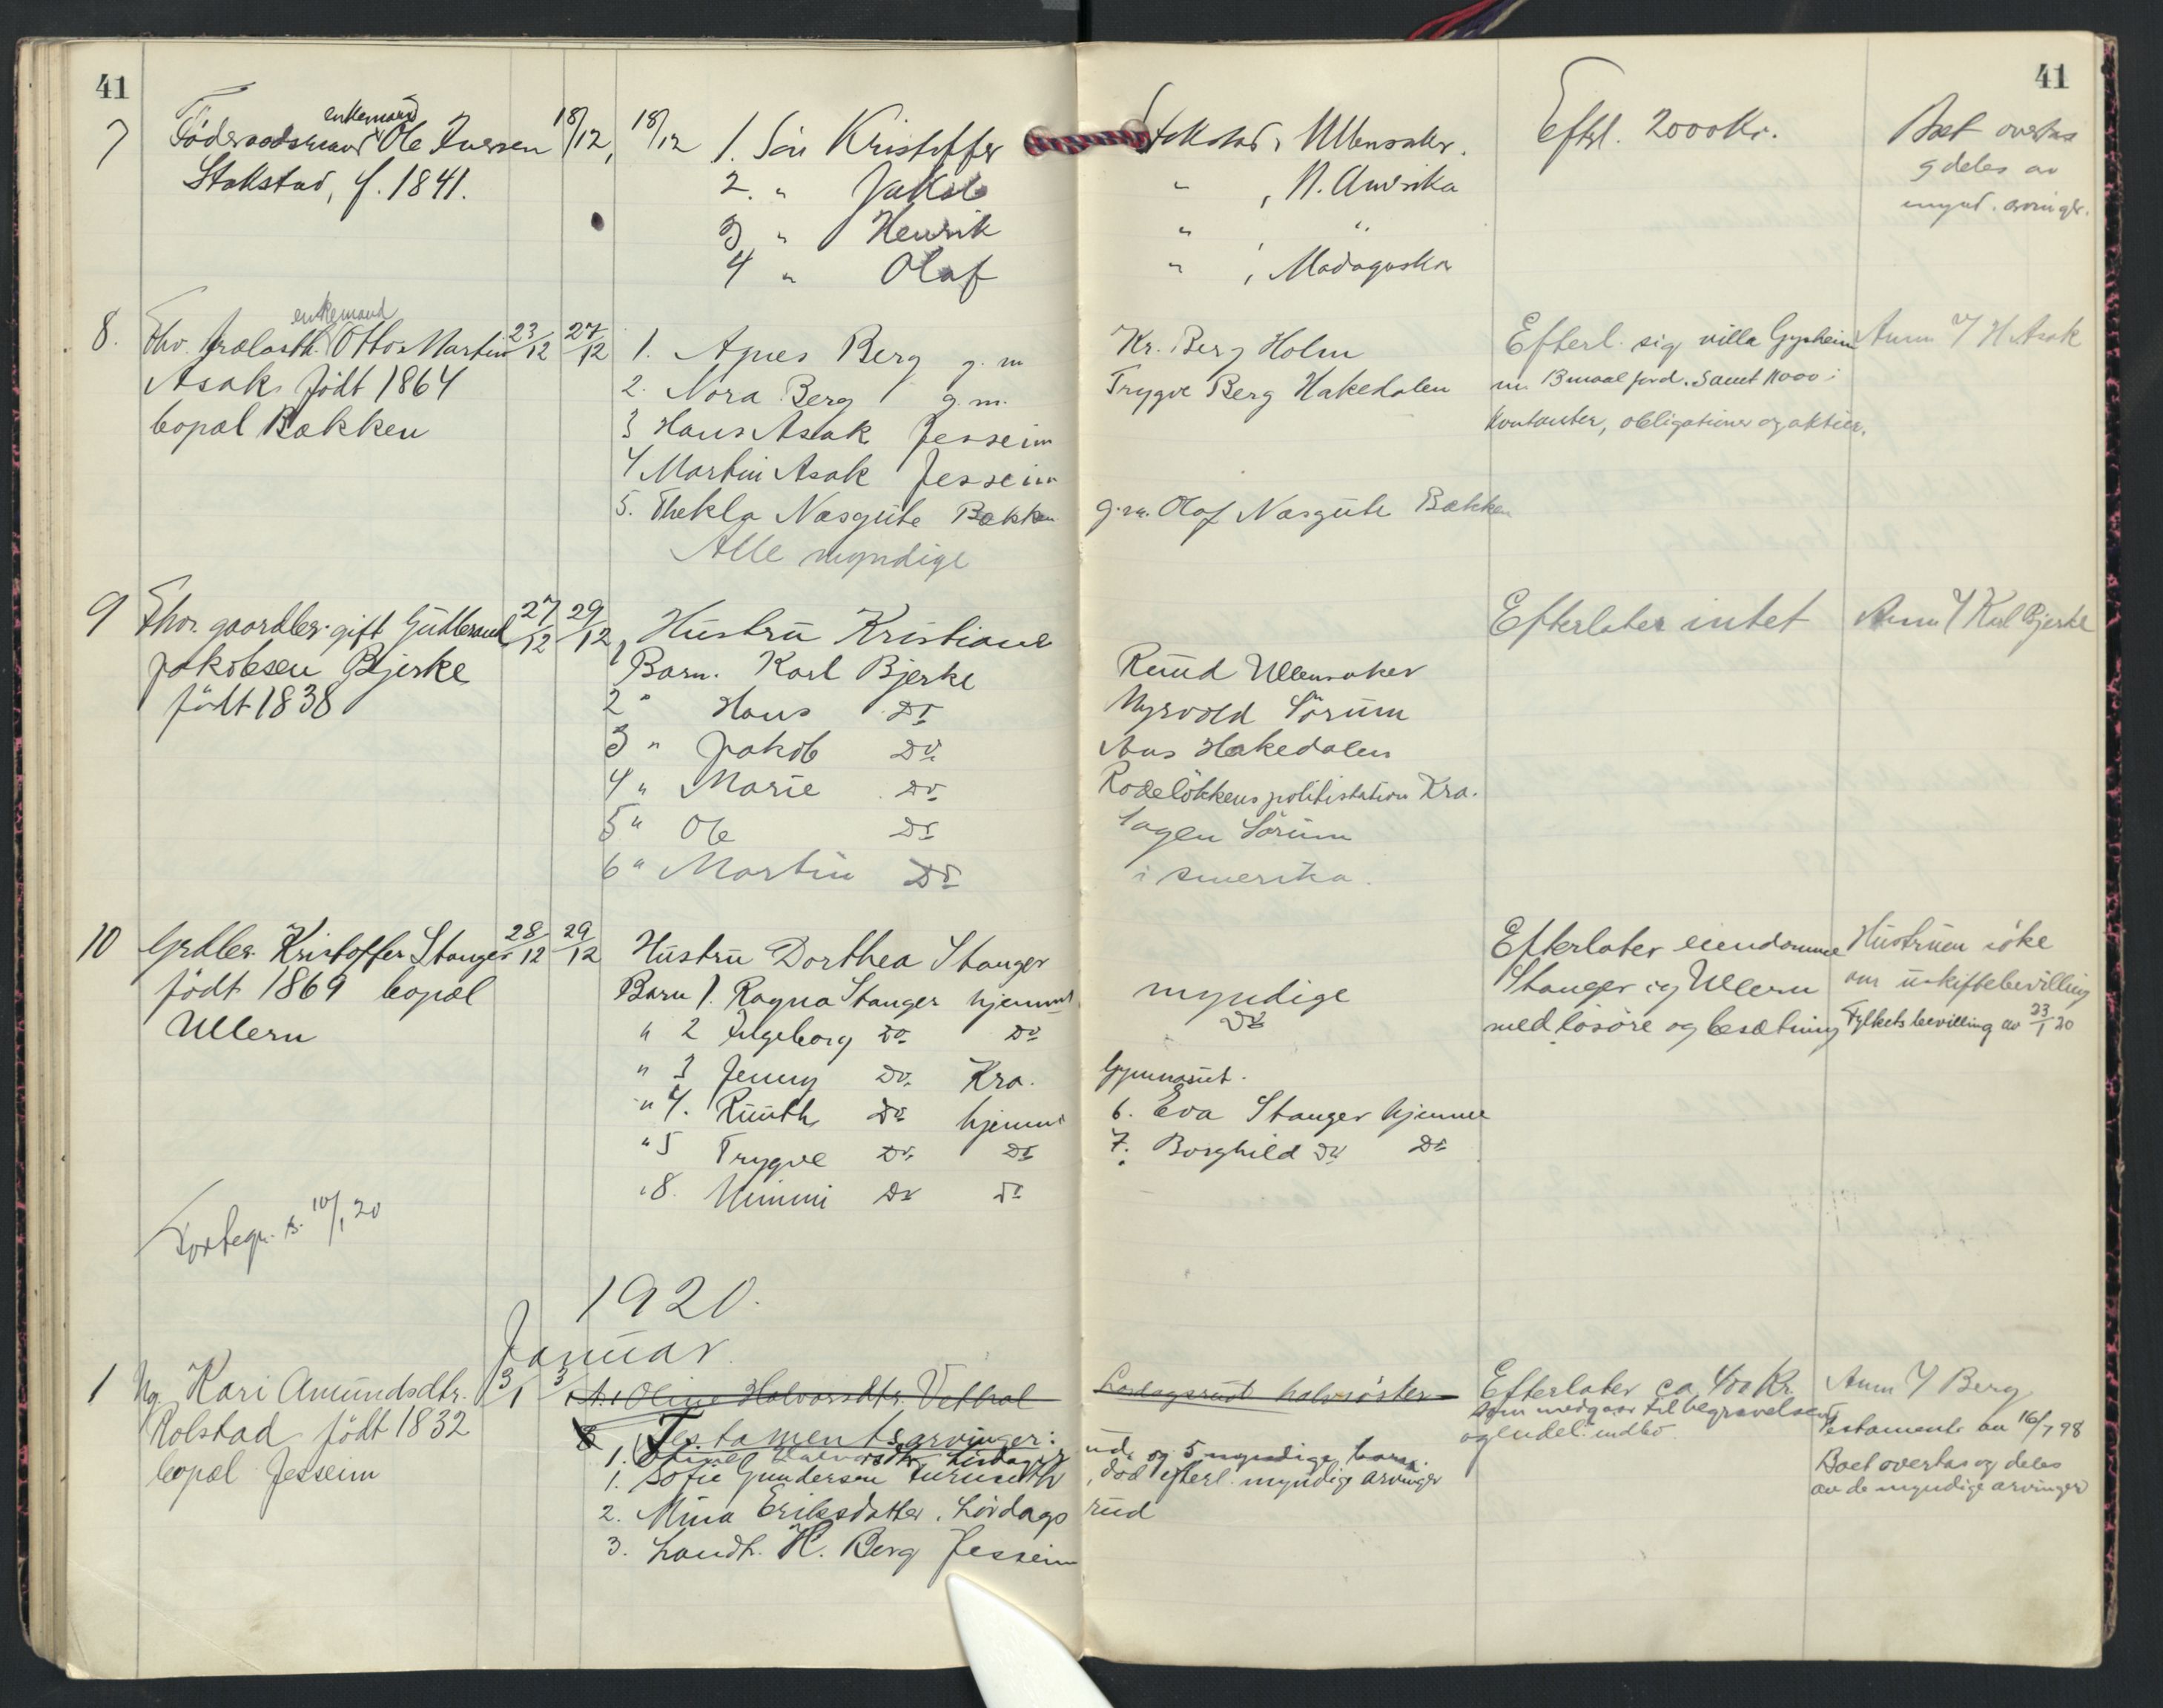 41
41
7 Föderaadsmand enkemand Ole Iversen 18/12, 18/12 1. Sön Kristoffer Stokstad, Ullensaker. Efterl. 2000 Kr. Boet overtas
Stokstad, f. 1841. 2. " Jakob " , N. Amerika g deles av
3 " Henrik " " mynd. arvinger.
4 " Olaf " , Madagaskar
8. Fhv. enkemand Otto Martin 23/12 27/12 1. Agnes Berg g. m Kr. Berg Holm Efterl. sig villa Gysheim Anm. H Asak
Asak födt 1864 2. Nora Berg g. m. Trygve Berg Hakedalen m 13 maal jord. Samt 11000 i
bopæl Bakken 3 Hans Asak Jesseim kontanter, obligationer og aktier.
4 Martin Asak Jesseim
5. Thekla Næsgute Bakken g. m. Olaf Næsgute Bakken
Alle myndige
9 Fhv. gaardbr. gift Gudbrand 27/12 29/12 Hustru Kristiane Efterlater intet Anm Karl Bjerke
Jakobsen Bjerke 1 Barn. Karl Bjerke Ruud Ullensaker
födt 1838 2 " Hans Do Myrvold Sörum
3 " Jakob Do Aas Hakedalen
4 " Marie Do Rodelökkens politistation Kra.
5 " Ole Do Lagen Sörum
6 " Martin Do i Amerika.
10 Grdbr. Kristoffer Stanger 28/12 29/12 Hustru Dorthea Stanger Efterlater eiendomme Hustruen söke
födt 1869 bopæl Barn 1. Ragna Stanger hjemme myndige Stanger og Ullern om uskiftebevilling
Ullern " 2 Ingeborg Do Do Do med lösöre og besætning Fylkets bevilling av 23/1 20
" 3 Jenny Do Kra. Gymnasiet.
" 4. Ruuth Do hjemme 6. Eva Stanger hjemme
" 5 Trygve Do Do 7. Borghild Do Do
" 8. Mimmi Do Do
Fortegn. s. 10/1 20
1920.
Januar.
1 Ug. Kari Amundsdtr. 3/1 3/1 Oline Halvorsdtr. Vethal Lördagsrud halvsöster Efterlater ca 400 Kr. Anm Berg
Rolstad födt 1832 Testamentsarvinger: som medgaar til begravelsen Testamente av 16/7 98
bopæl Jesseim 1. Oline Halvorsdtr. Lördagsrud og 5 myndige barn. og endel indbo
1. Sofie Gundersen Furuseth, död efterl. myndige arvinger Boet overtas og deles
2. Mina Eriksdatter, Lördagsrud av de myndige arvinger
3. Landh. H. Berg Jesseim